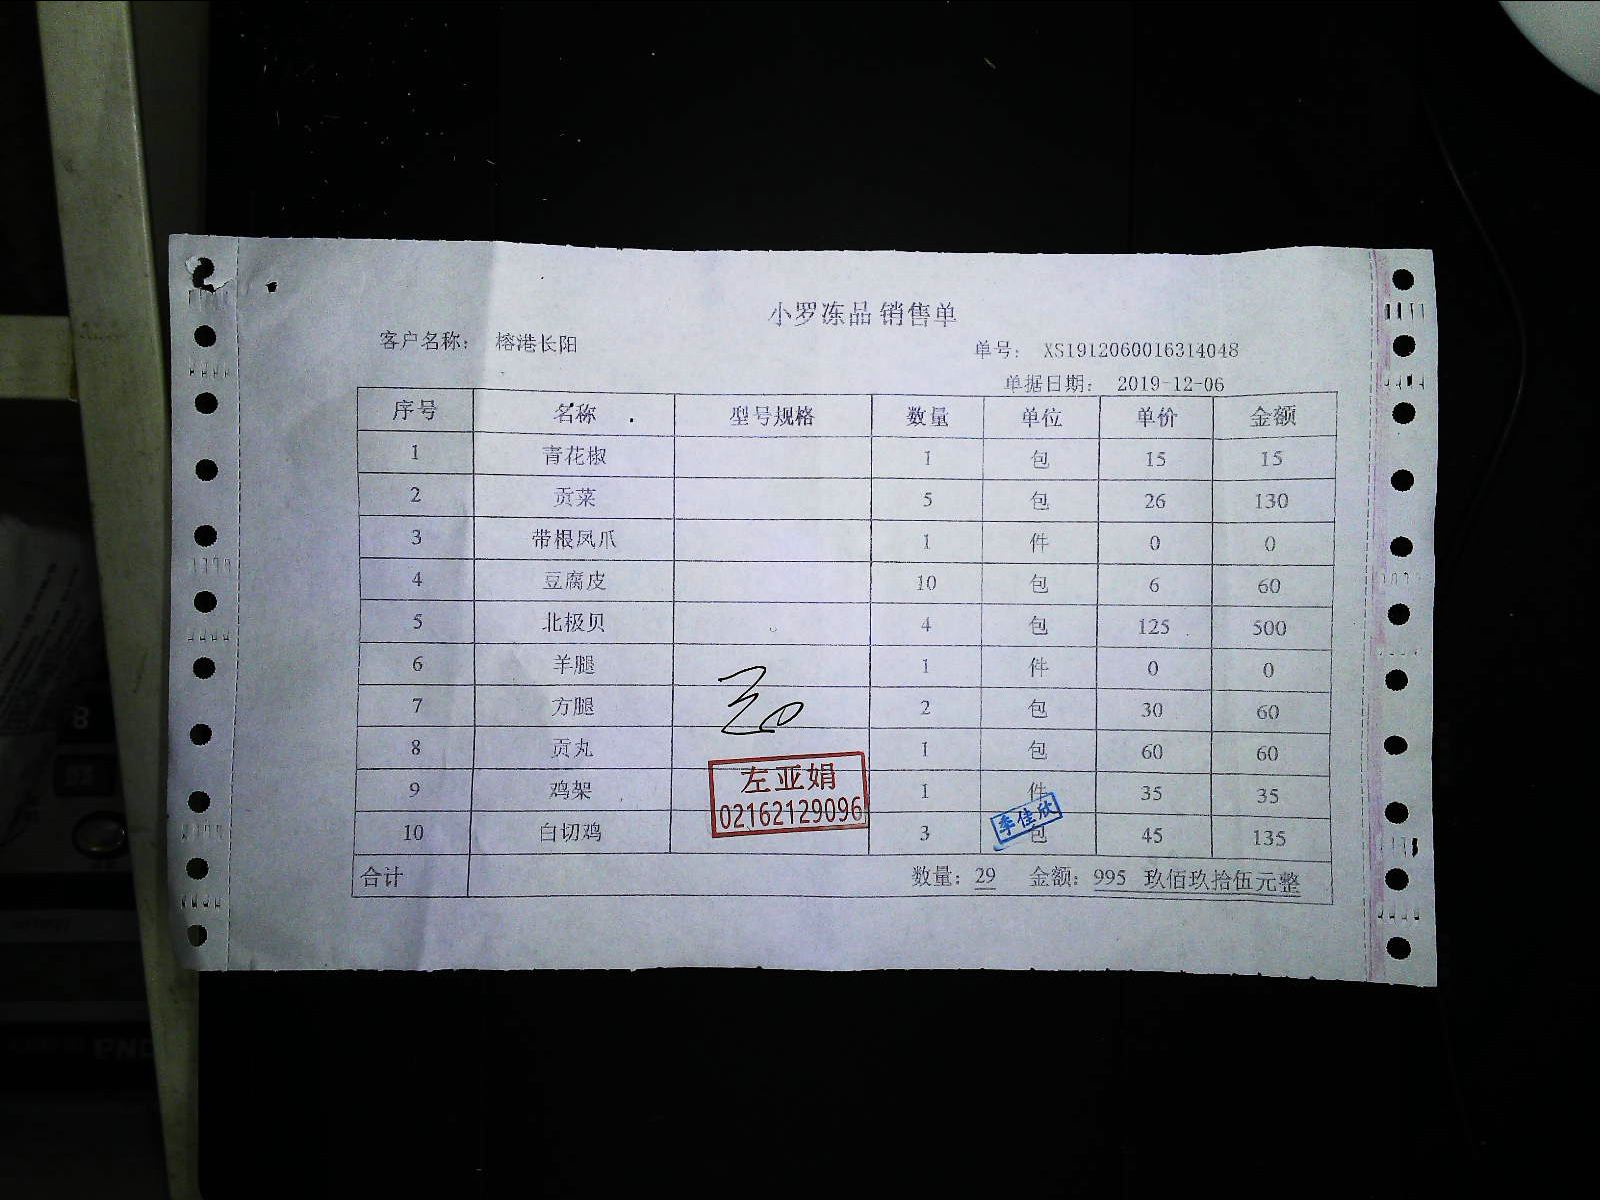 小罗冻品 销售单
客户名称: 榕港长阳 单号: XS1912060016314048
单据日期: 2019-12-06
序号 名称 型号规格 数量 单位 单价 金额
1 青花椒 1 包 15 15
2 贡菜 5 包 26 130
3 带根凤爪 1 件 0 0
4 豆腐皮 10 包 6 60
5 北极贝 4 包 125 500
6 羊腿 1 件 0 0
7 方腿 2 包 30 60
8 贡丸 1 包 60 60
9 鸡架 1 件 35 35
10 白切鸡 3 包 45 135
左亚娟
02162129096
李佳欣
合计 数量: 29 金额: 995 玖佰玖拾伍元整